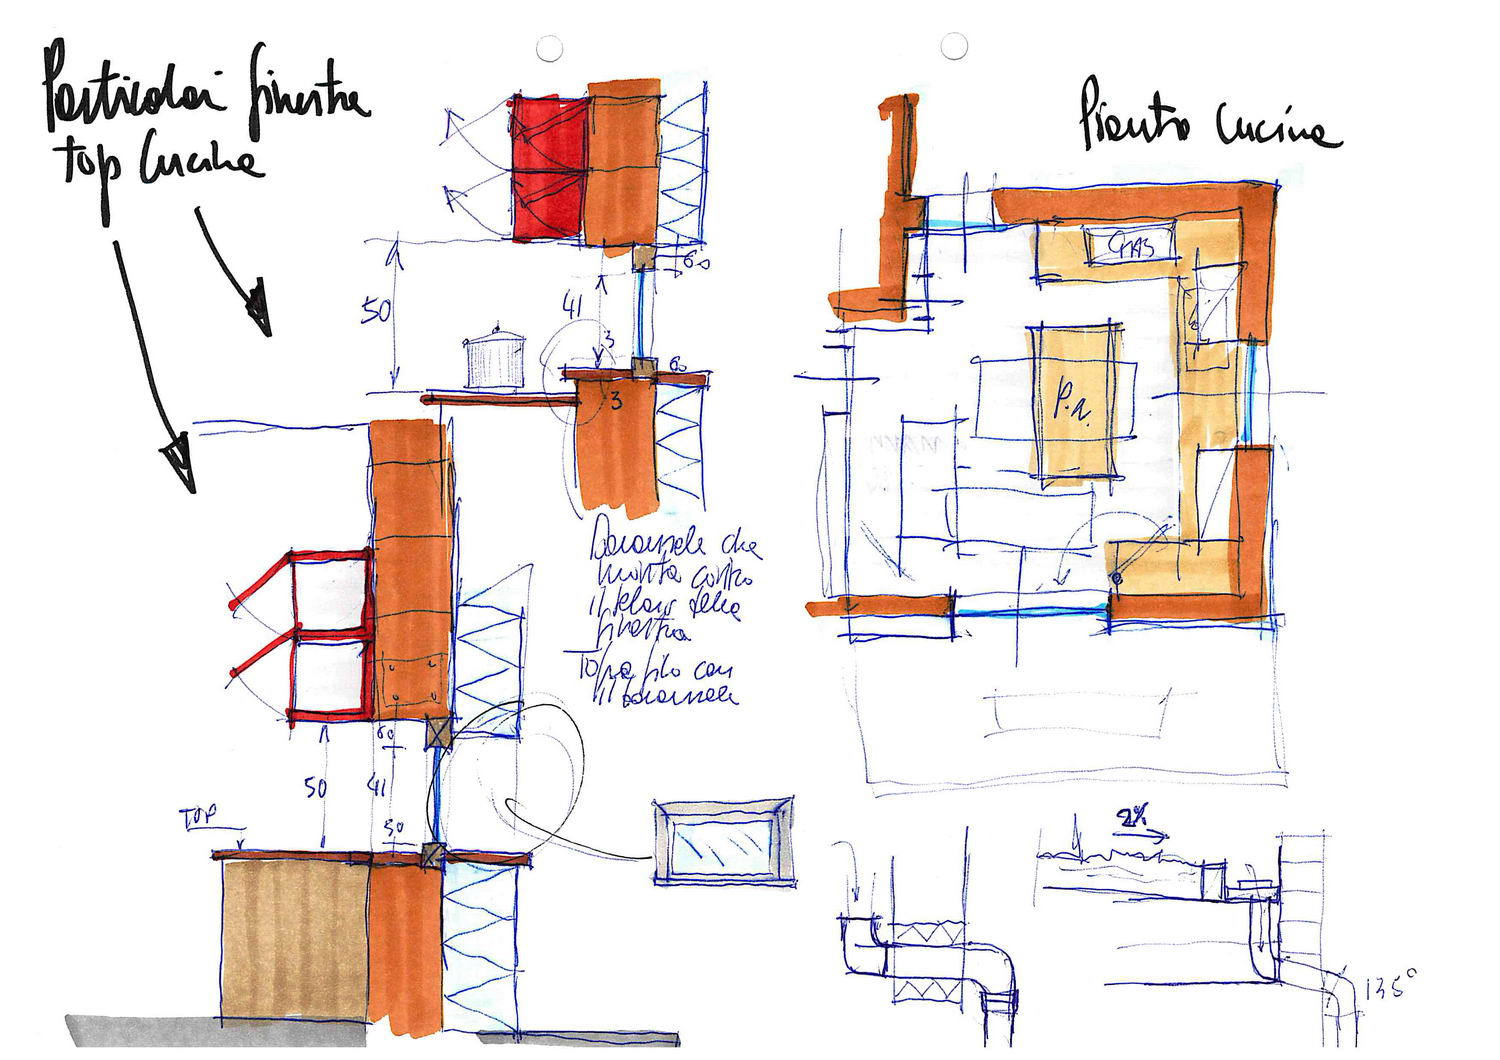 Particolari finestra
top Cucina
Pianta Cucina
GAS
50
41
60
3
60
3
P.r.
Davanzale che
monta contro
il telaio della
finestra
Top a filo con
il davanzale
60
50
41
TOP
50
2%
135°